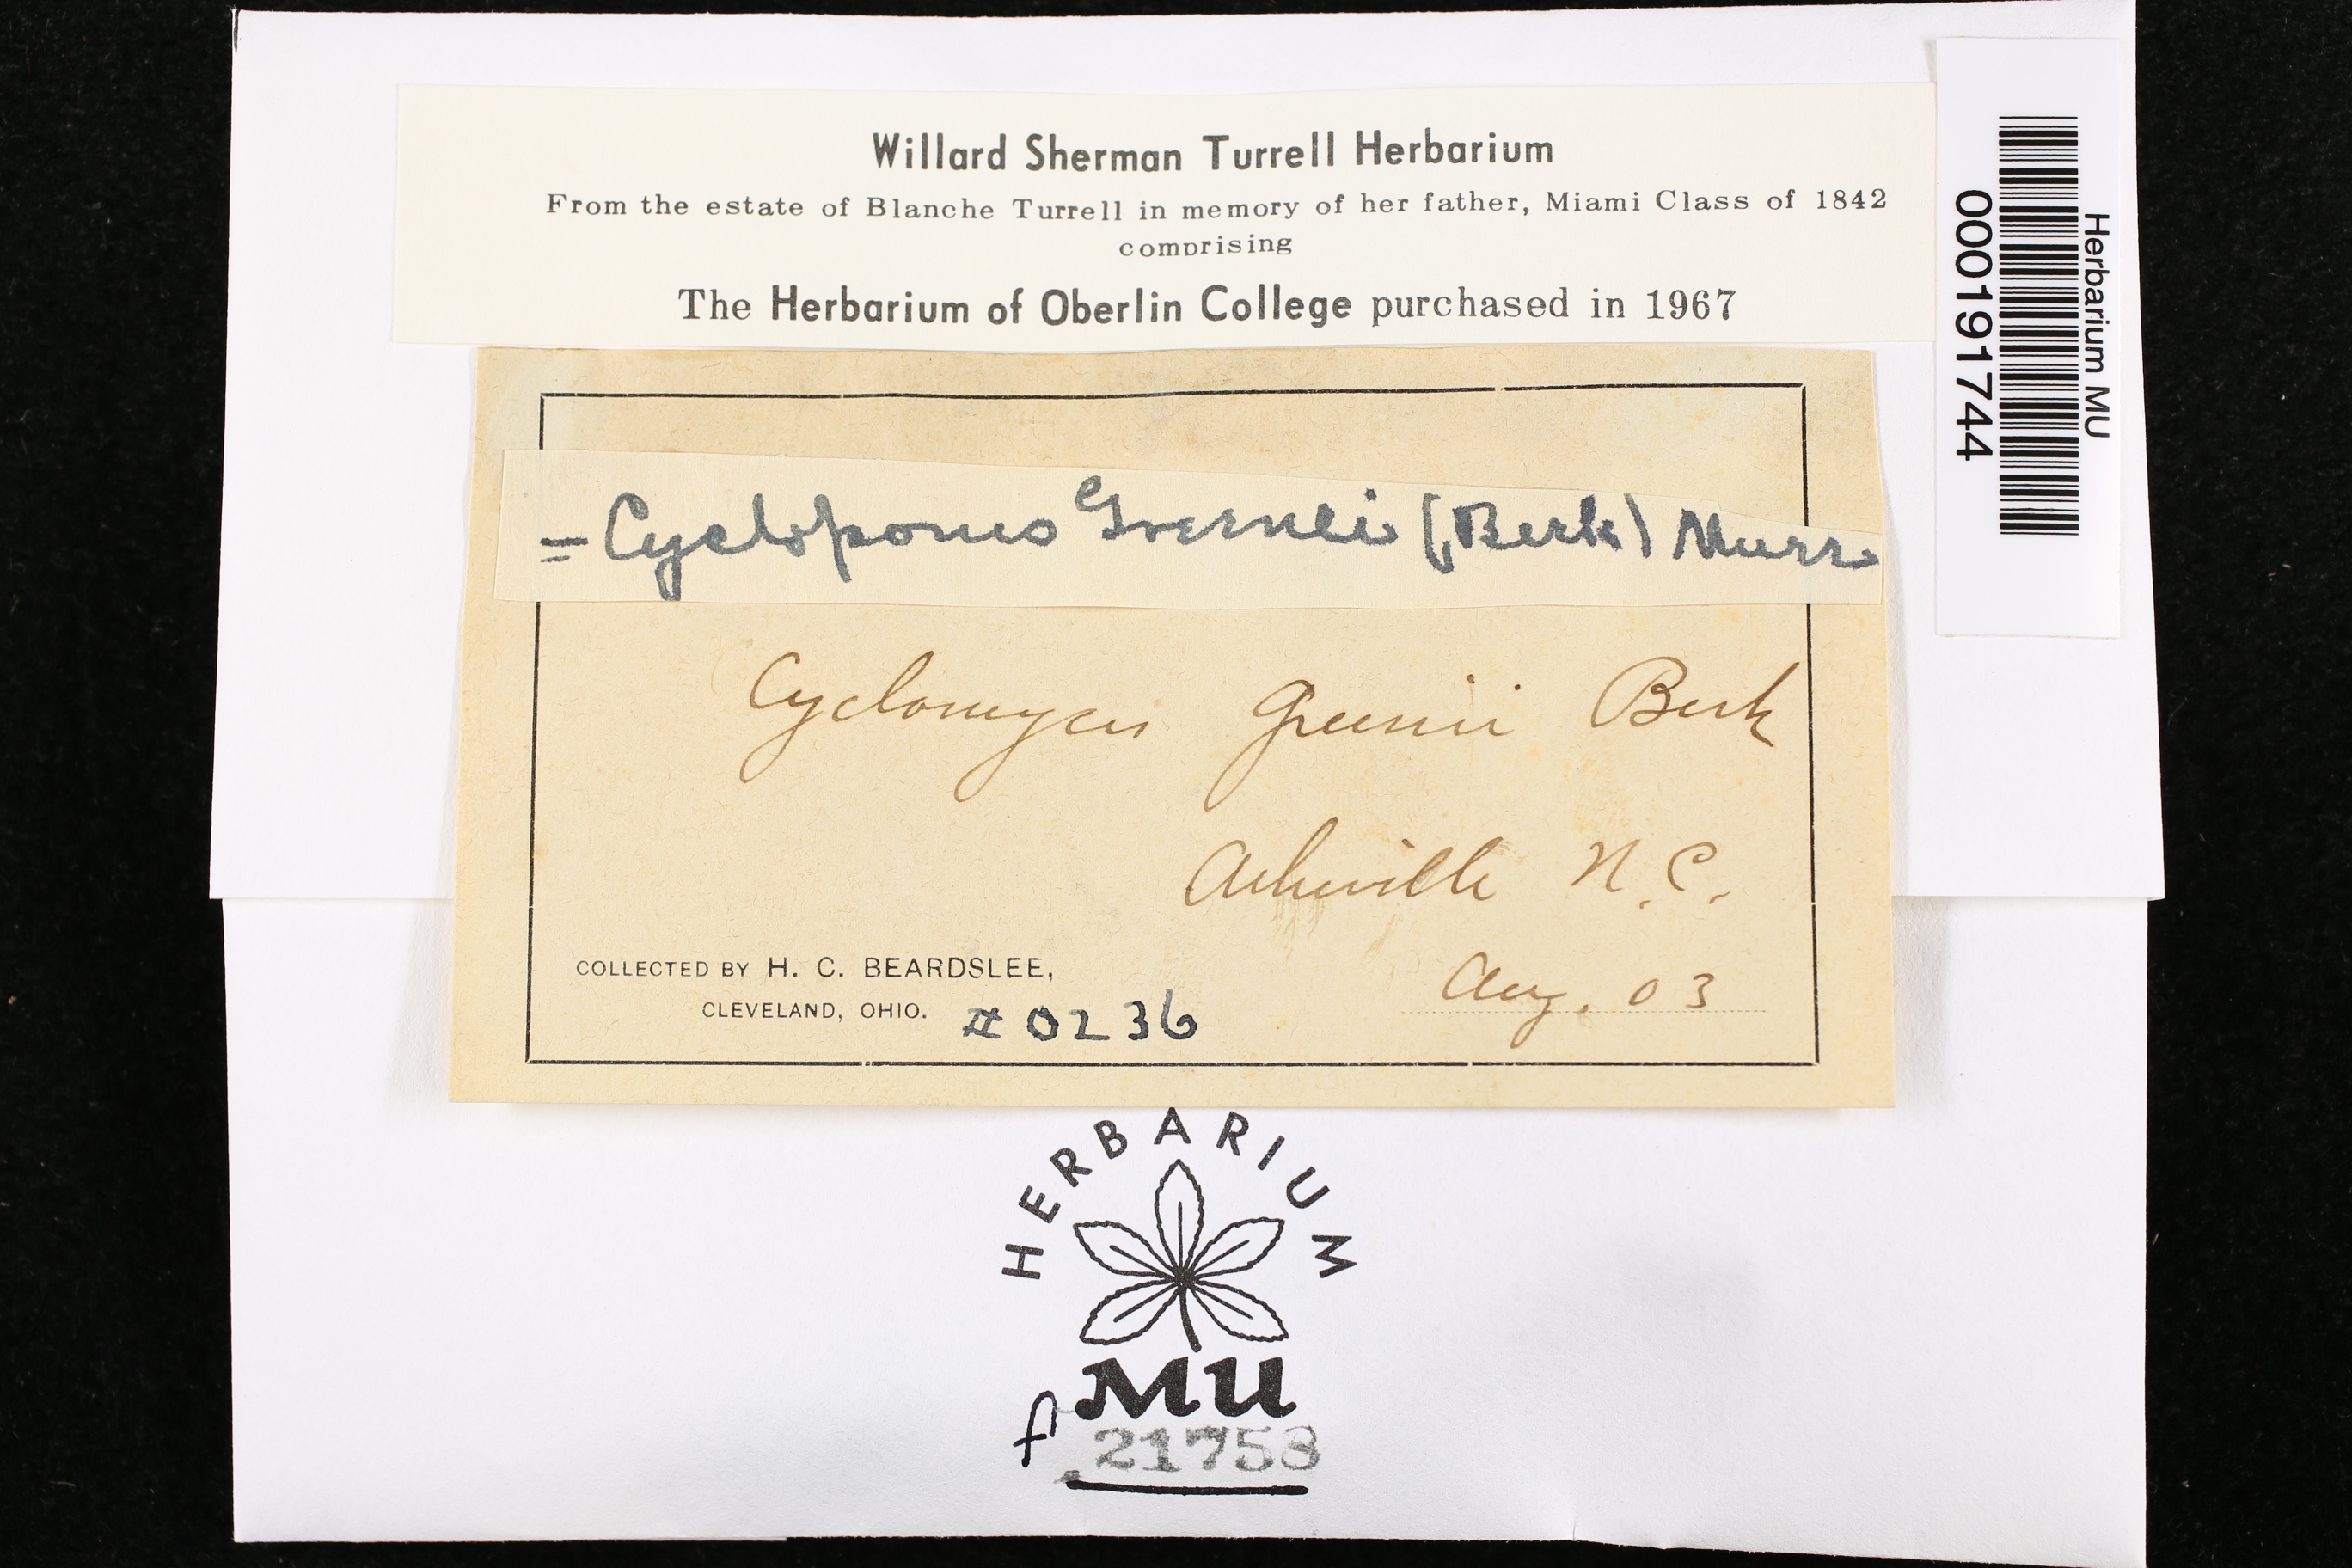 Willard Sherman Turrell Herbarium
From the estate of Blanche Turrell in memory of her father, Miami Class of 1842
comprising
The Herbarium of Oberlin College purchased in 1967
Herbarium MU
000191744
= Cycloporus Greenei (Berk) Murr
Cyclomyces Greenii Berk
Asheville N.C.
Aug. 03
COLLECTED BY H. C. BEARDSLEE,
CLEVELAND, OHIO. # 0236
HERBARIUM
MU
f. 21758